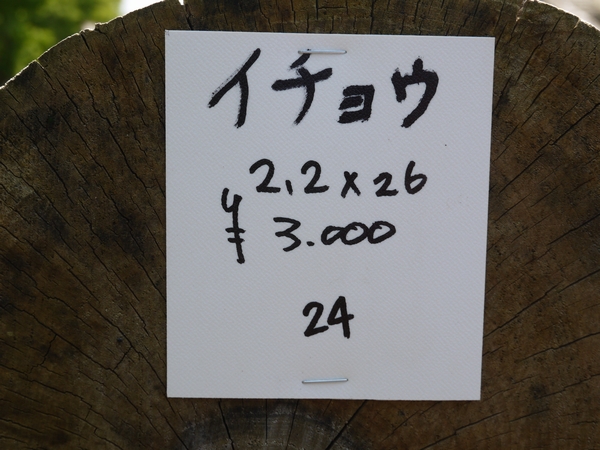 イチョウ
2.2×26
¥3.000
24